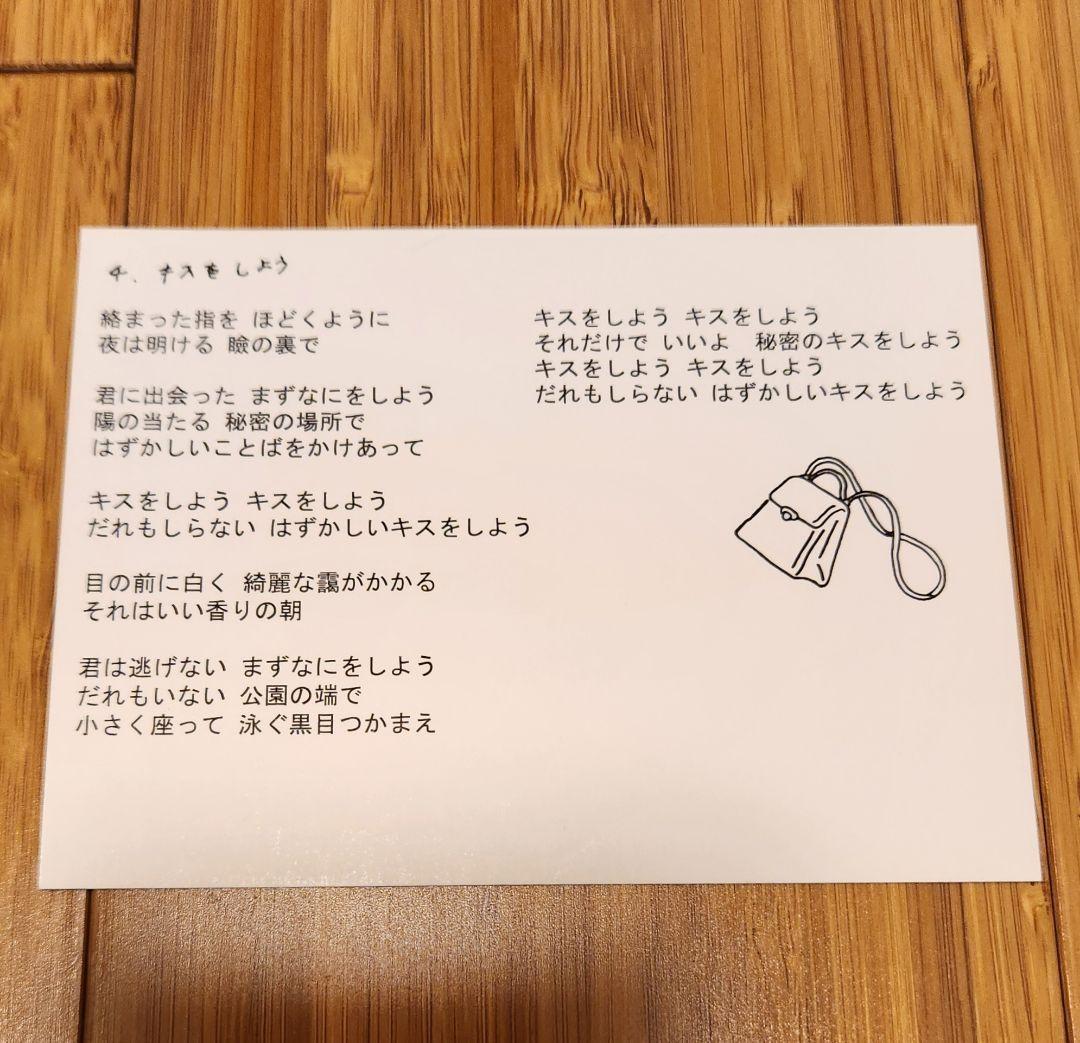 4. キスをしよう
絡まった指を ほどくように
夜は明ける 瞼の裏で
君に出会った まずなにをしよう
陽の当たる 秘密の場所で
はずかしいことばをかけあって
キスをしよう キスをしよう
だれもしらない はずかしいキスをしよう
目の前に白く 綺麗な靄がかかる
それはいい香りの朝
君は逃げない まずなにをしよう
だれもいない 公園の端で
小さく座って 泳ぐ黒目つかまえ
キスをしよう キスをしよう
それだけで いいよ 秘密のキスをしよう
キスをしよう キスをしよう
だれもしらない はずかしいキスをしよう